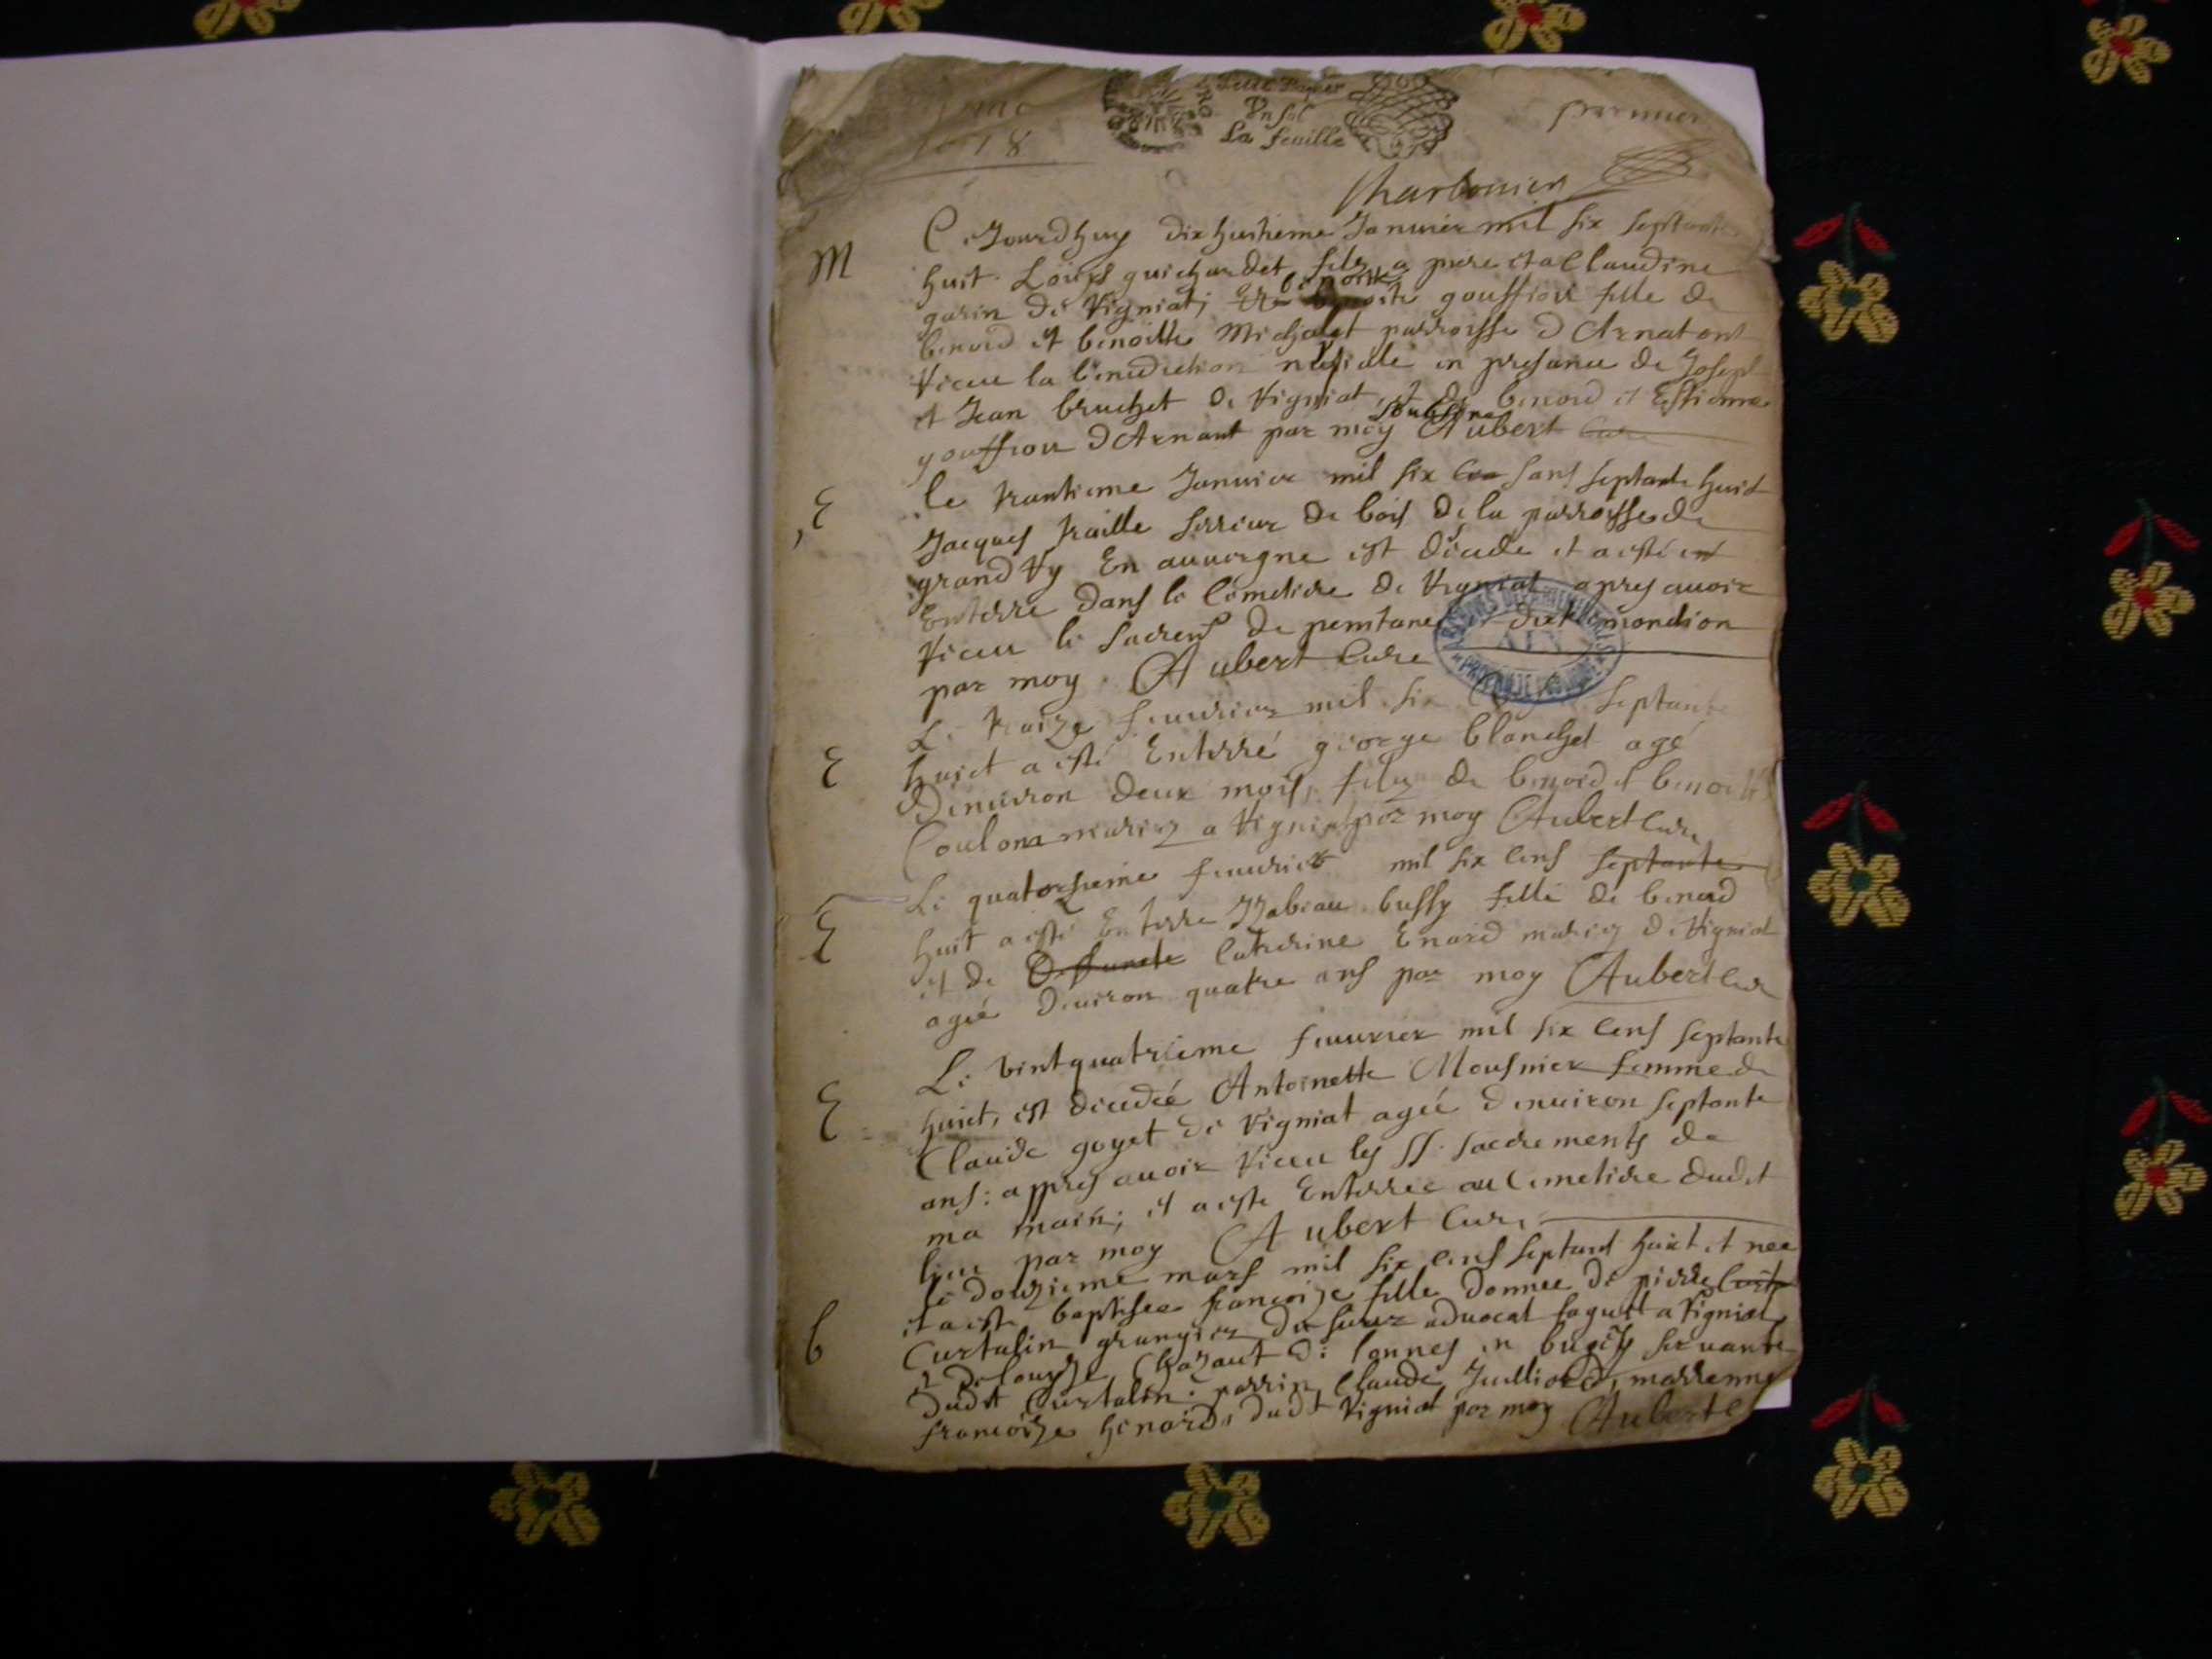 1678
Petit Papier
Un sol
La feuille
premier
Charbonnier
M
Cejourdhuy dixhuitieme Januier mil six septante
huit Louys guichardet filz a pierre et a Claudine
garin de Vigniat, Et benoitte gouffiou fille de
benoid et benoitte Michalet parroisse d Arnat ont
receu la benediction nuptiale en presance de Joseph
et Jean bruchet de Vigniat, et de benoid et Estienne
gouffiou d Arnant par moy soubsigné Aubert Curé
E
le trantieme Januier mil six sans septante huit
Jacques traille serrieur de bois de la parroisse de
grand Ry En auuergne est décédé et a esté
Enterré dans le Cemetiere de Vigniat apres auoir
receu le sacrent de penitance et dextremondion
par moy Aubert Curé
ARCHIVES DEPARTEMENTALES
AIN
PROPRIETE PUBLIQUE
E
Le traize feurier mil six septante
huict a esté Enterré george blanchet agé
Denuiron deux mois, filz de benoid et benoitte
Coulon mariez a Vigniat par moy Aubert Curé
E
Le quatorzieme feurier mil six cens septante
huit a esté Enterré Izabeau bussy fille de benoid
et de Deffuncte Catherine Enard mariez de Vigniat
agée Denuiron quatre ans par moy Aubert Cur
E
Le vintquatrieme feurier mil six cens septante
huict, est décedée Antoinette Mousnier femme de
Claude goyet de Vigniat agée denuiron septante
ans: appres auoir receu les SS. sacrements de
ma main; et a esté Enterrée au Cemetiere dudit
lieu par moy Aubert Curé
B
le douzieme mars mil six cens septant huict et née
et a esté baptisée françoize fille donnée de pierre
Curtalin grangier du sieur aduocat saguet a Vigniat
et de Chazaut de Connes en bugeÿ seruante
dudit Curtalin. parrin Claude Juilliard, marrenne
françoize henard, dudt Vigniat par moy Aubert C